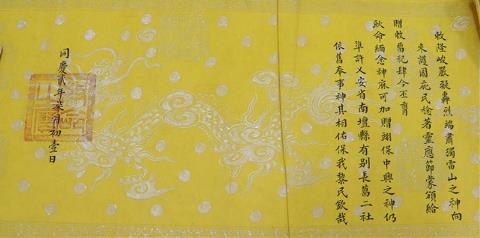 敕隆峻嚴凝轟烈端肅獨雷山之神向
來護國庇民稔著靈應節蒙頒給
贈敕留祀肆今丕膺
耿命緬念神庥可加贈翊保中興之神仍
準許乂安省南壇縣有別長葛二社
依舊奉事神其相佑保我黎民欽哉
同慶貳年柒月初壹日